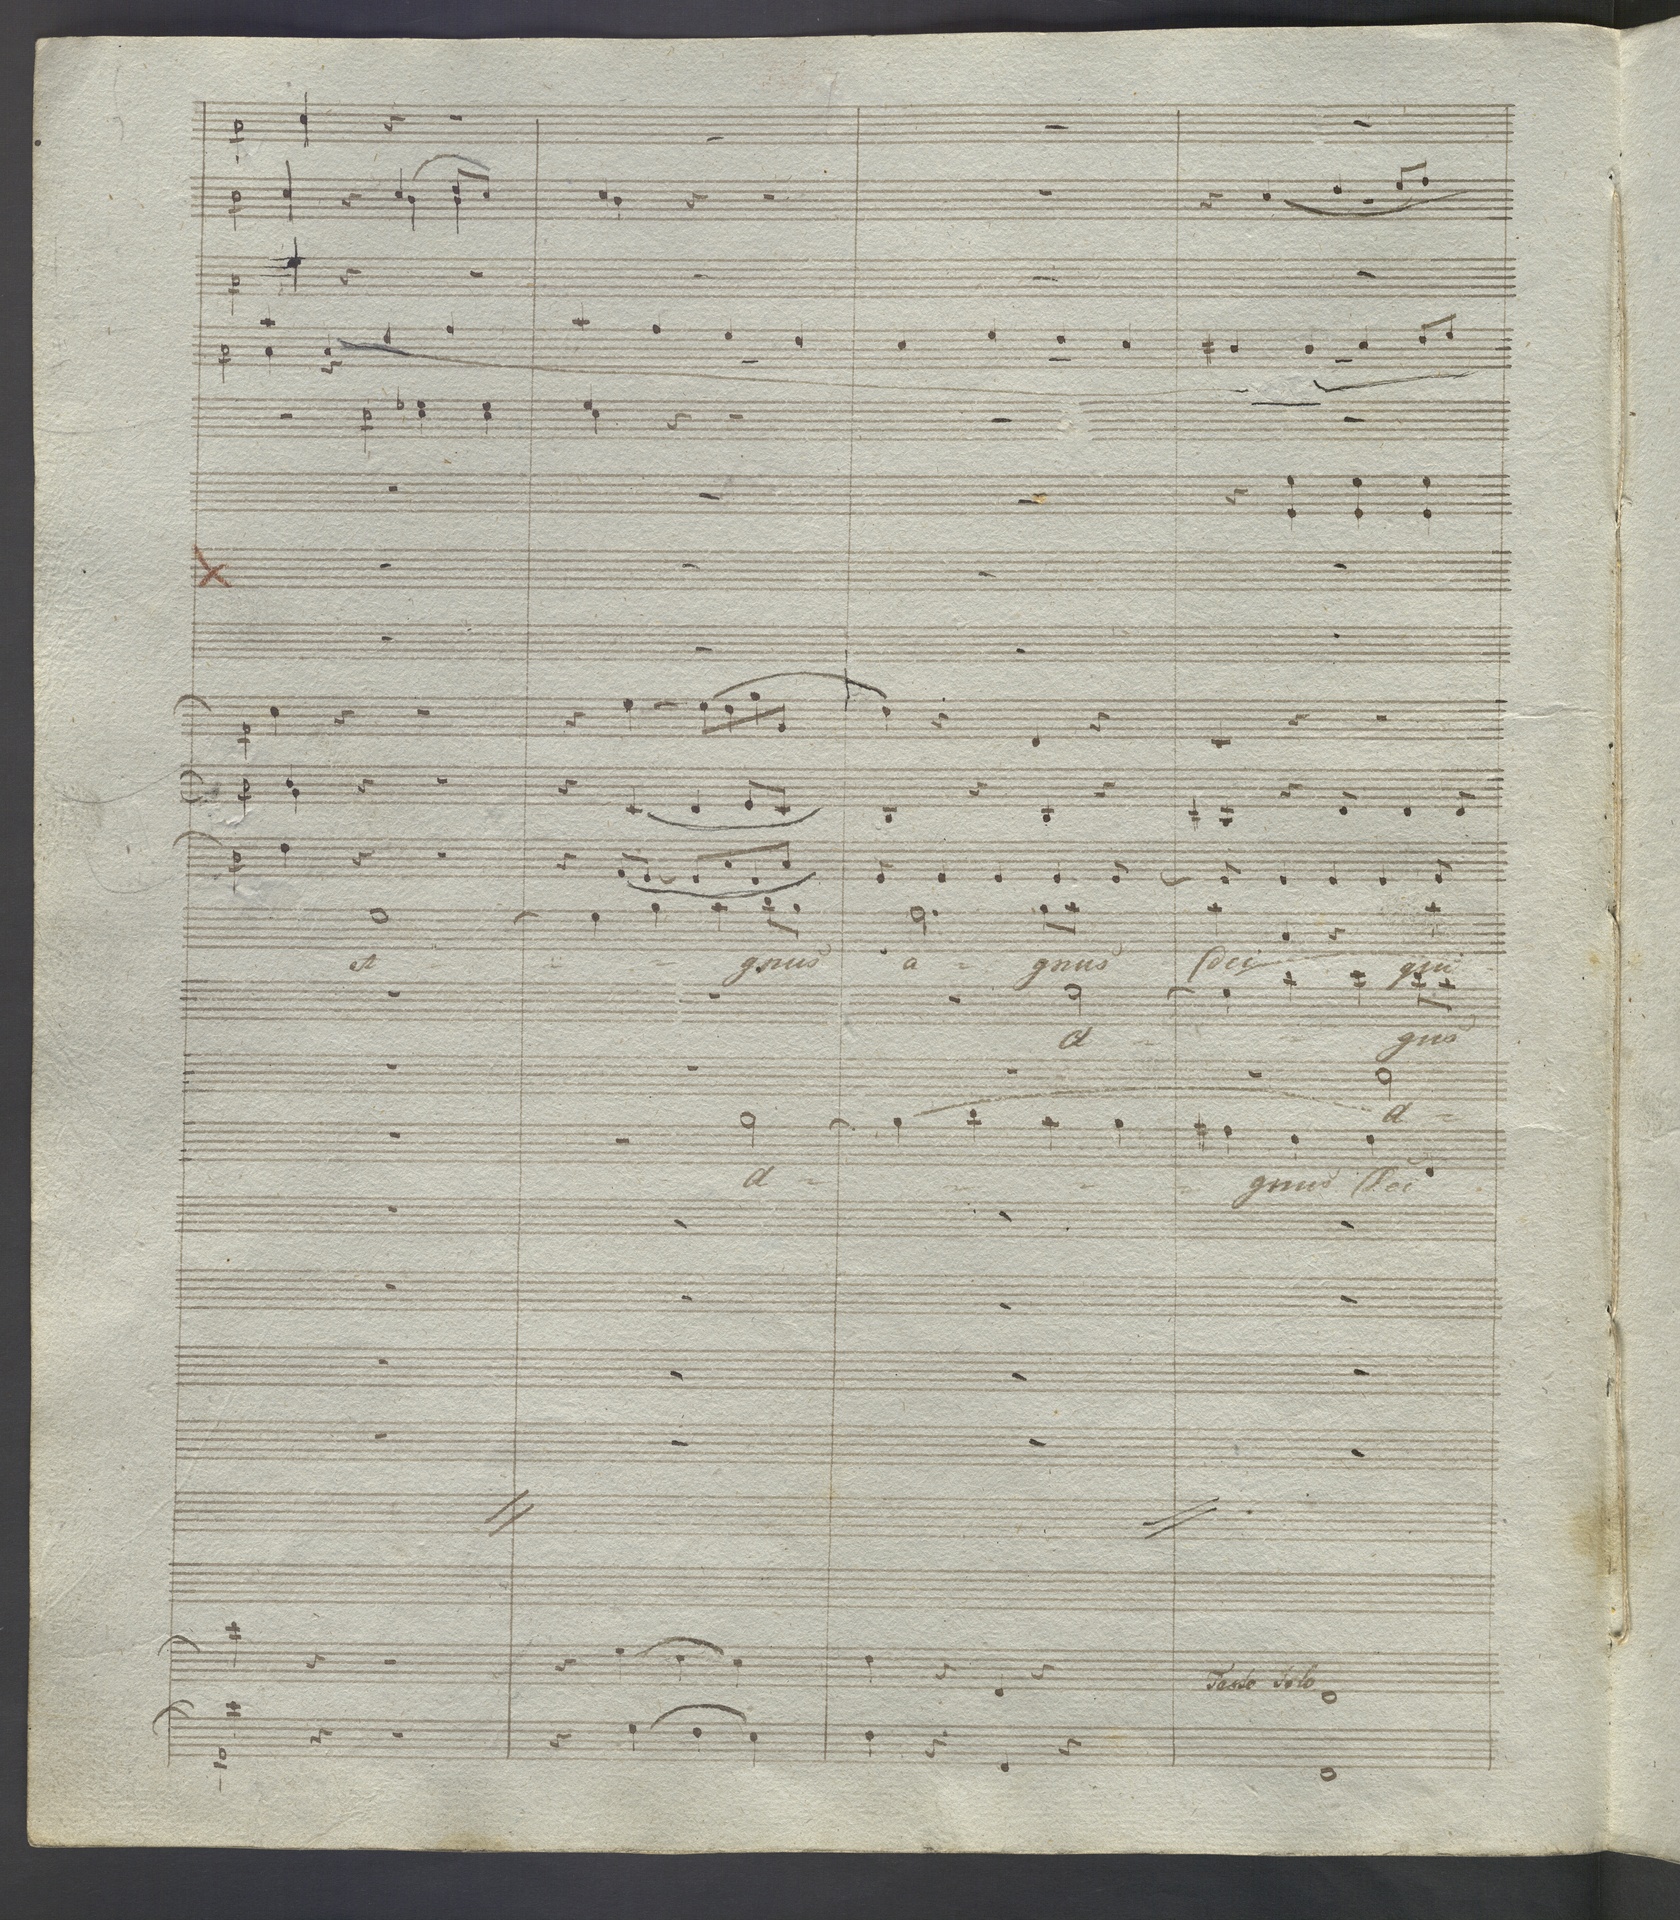 A - - - gnus a - gnus Dei qui
A - - gnus
A -
A - - - - gnus Dei
Tasto Solo